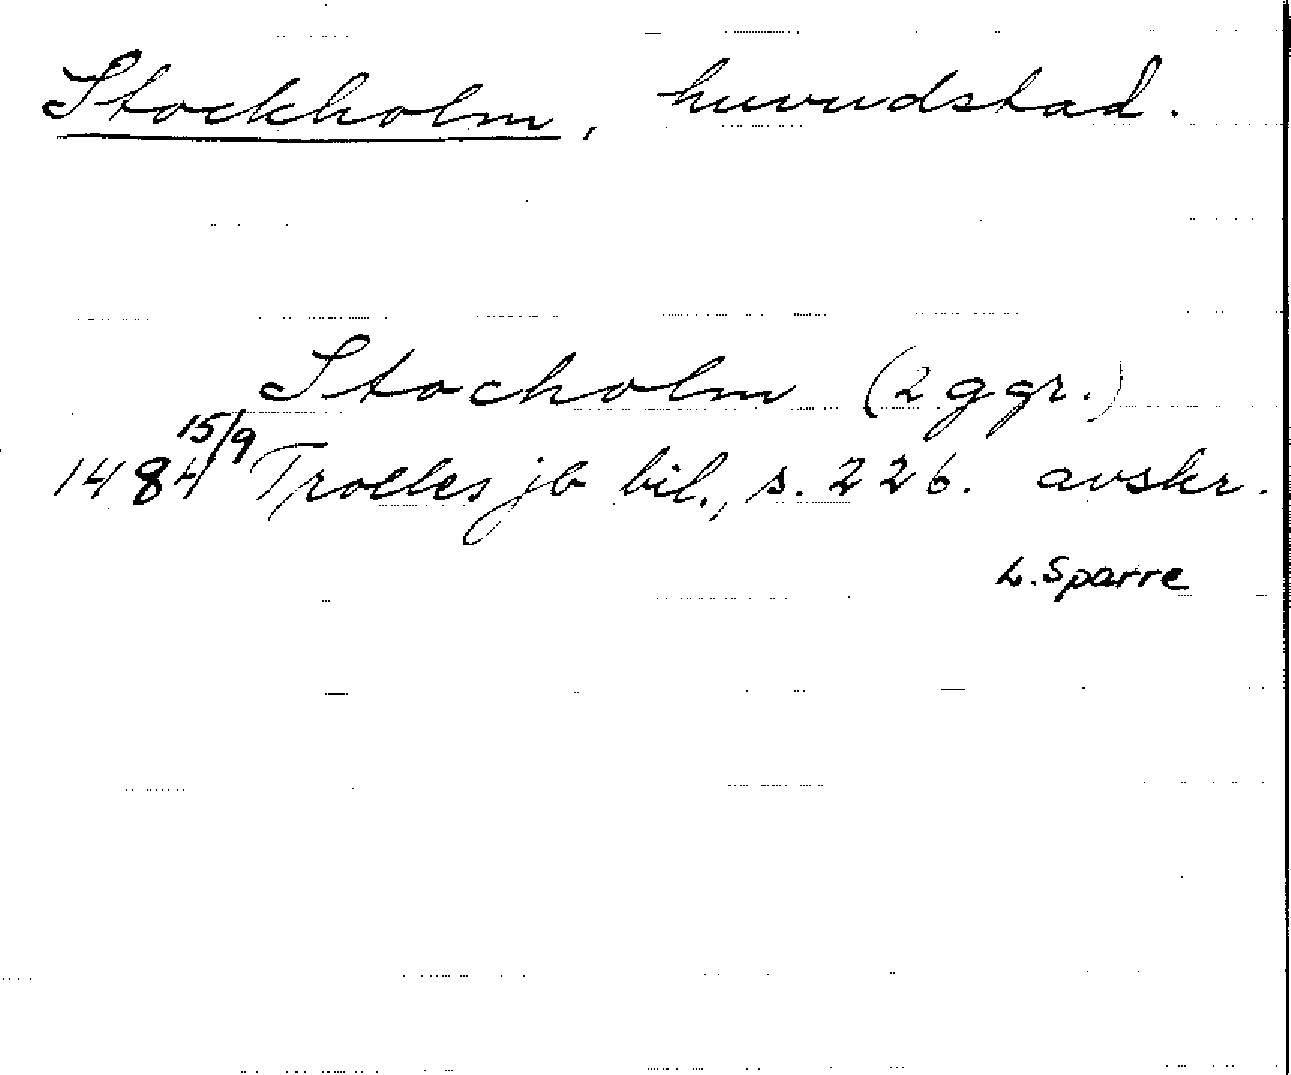 Stockholm, huvudstad.
Stocholm (2 ggr.)
1484 15/9 Trolles jb bil., s. 226. avskr.
L. Sparre